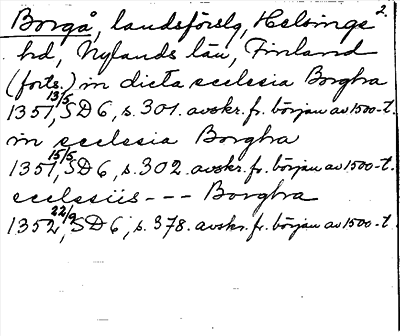 2.
Borgå, landsförslg, Helsinge
hd, Nylands län, Finland
(forts.) in dicta ecclesia Borgha
1351 13/5, SD 6, s. 301. avskr. fr. början av 1500-t.
in ecclesia Borgha
1351 15/5, SD 6, s. 302. avskr. fr. början av 1500-t.
ecclesiis --- Borgha
1352 22/9, SD 6, s. 378. avskr. fr. början av 1500-t.